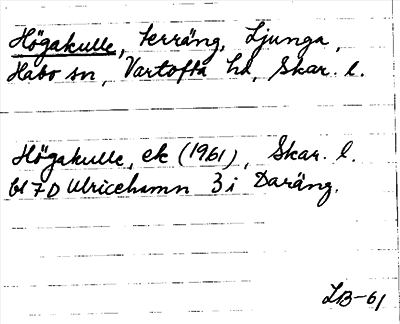 Högakulle, terräng, Ljunga,
Habo sn, Vartofta hd, Skar. l.
Högakulle, ek (1961), Skar. l.
bl 7D Ulricehamn 3i Daräng.
LB-61